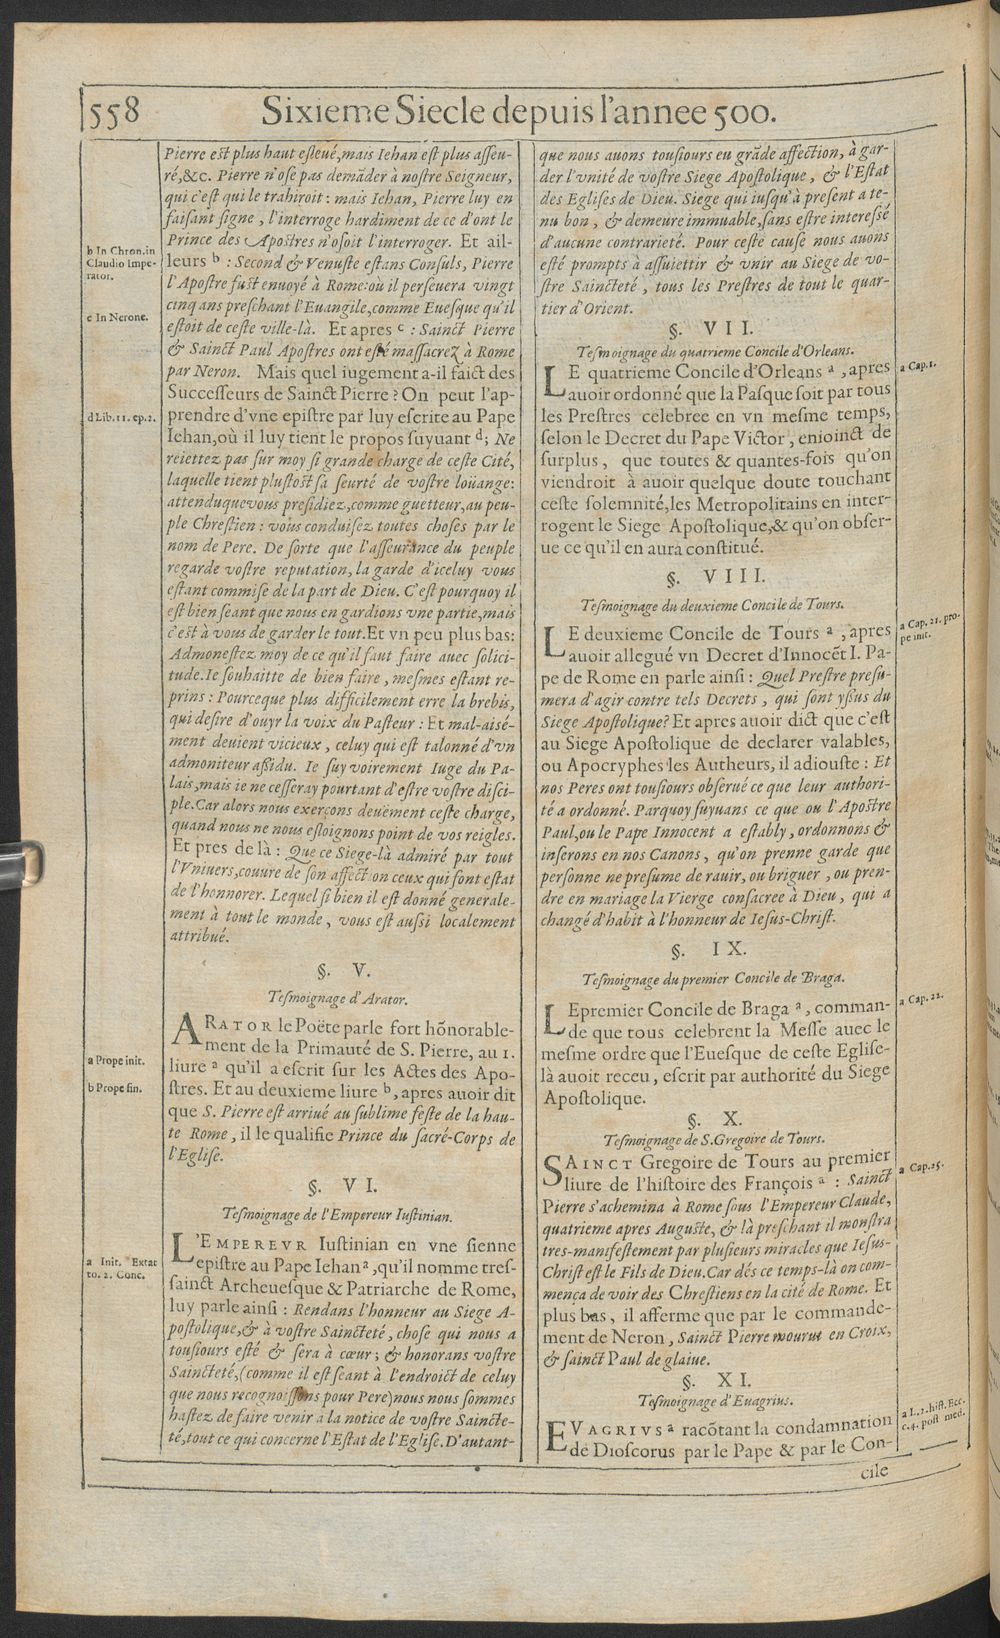 558
Sixieme Siecle depuis l'annee 500.
Pierre est plus haut esleué, mais Iehan est plus asseu-
ré, &c. Pierre n'ose pas demāder à nostre Seigneur,
qui c'est qui le trahiroit : mais Iehan, Pierre luy en
faisant signe, l'interroge hardiment de ce d'ont le
Prince des Apostres n'osoit l'interroger. Et ail-
leurs b : Second & Venuste estans Consuls, Pierre
l'Apostre fust enuoyé à Rome: où il perseuera vingt
cinq ans preschant l'Euangile, comme Euesque qu'il
estoit de ceste ville-là. Et apres c : Sainct Pierre
& Sainct Paul Apostres ont esté massacrez à Rome
par Neron. Mais quel iugement a-il faict des
Successeurs de Sainct Pierre ? On peut l'ap-
prendre d'vne epistre par luy escrite au Pape
Iehan, où il luy tient le propos suyuant d; Ne
reiettez pas sur moy si grande charge de ceste Cité,
laquelle tient plustost sa seurté de vostre loüange:
attenduquevous presidiez, comme guetteur, au peu-
ple Chrestien : vous conduisez toutes choses par le
nom de Pere. De sorte que l'asseurance du peuple
regarde vostre reputation, la garde d'iceluy vous
estant commise de la part de Dieu. C'est pourquoy il
est bien seant que nous en gardions vne partie, mais
c'est à vous de garder le tout. Et vn peu plus bas:
Admonestez moy de ce qu'il faut faire auec solici-
tude. Ie souhaitte de bien faire, mesmes estant re-
prins : Pourceque plus difficilement erre la brebis,
qui desire d'ouyr la voix du Pasteur : Et mal-aisé-
ment deuient vicieux, celuy qui est talonné d'vn
admoniteur assidu. Ie suy voirement Iuge du Pa-
lais, mais ie ne cesseray pourtant d'estre vostre disci-
ple. Car alors nous exerçons deuëment ceste charge,
quand nous ne nous esloignons point de vos reigles.
Et pres de là : Que ce Siege-là admiré par tout
l'Vniuers, couure de son affection ceux qui sont estat
de l'honnorer. Lequel si bien il est donné generale-
ment à tout le monde, vous est aussi localement
attribué.
§. V.
Tesmoignage d'Arator.
ARATOR le Poëte parle fort hōnorable-
ment de la Primauté de S. Pierre, au 1.
liure a qu'il a escrit sur les Actes des Apo-
stres. Et au deuxieme liure b, apres auoir dit
que S. Pierre est arriué au sublime feste de la hau-
te Rome, il le qualifie Prince du sacré-Corps de
l'Eglise.
§. VI.
Tesmoignage de l'Empereur Iustinian.
L'EMPEREVR Iustinian en vne sienne
epistre au Pape Iehan a, qu'il nomme tres-
sainct Archeuesque & Patriarche de Rome,
luy parle ainsi : Rendans l'honneur au Siege A-
postolique, & à vostre Saincteté, chose qui nous a
tousiours esté & sera à cœur ; & honorans vostre
Saincteté, (comme il est seant à l'endroict de celuy
que nous recognoissons pour Pere) nous nous sommes
hastez de faire venir à la notice de vostre Saincte-
té, tout ce qui concerne l'Estat de l'Eglise. D'autant-
b In Chron. in
Claudio Impe-
rator.
c In Nerone.
d Lib. 11. ep. 2.
a Prope init.
b Prope fin.
a Init. Extat
to. 2. Conc.
que nous auons tousiours eu grāde affection, à gar-
der l'vnité de vostre Siege Apostolique, & l'Estat
des Eglises de Dieu. Siege qui iusqu'à present a te-
nu bon, & demeure immuable, sans estre interessé
d'aucune contrarieté. Pour ceste cause nous auons
esté prompts à assuiettir & vnir au Siege de vo-
stre Saincteté, tous les Prestres de tout le quar-
tier d'Orient.
§. VII.
Tesmoignage du quatrieme Concile d'Orleans.
LE quatrieme Concile d'Orleans a, apres
auoir ordonné que la Pasque soit par tous
les Prestres celebree en vn mesme temps,
selon le Decret du Pape Victor, enioinct de
surplus, que toutes & quantes-fois qu'on
viendroit à auoir quelque doute touchant
ceste solemnité, les Metropolitains en inter-
rogent le Siege Apostolique, & qu'on obser-
ue ce qu'il en aura constitué.
§. VIII.
Tesmoignage du deuxieme Concile de Tours.
LE deuxieme Concile de Tours a, apres
auoir allegué vn Decret d'Innocēt I. Pa-
pe de Rome en parle ainsi : Quel Prestre presu-
mera d'agir contre tels Decrets, qui sont yssus du
Siege Apostolique? Et apres auoir dict que c'est
au Siege Apostolique de declarer valables,
ou Apocryphes les Autheurs, il adiouste : Et
nos Peres ont tousiours obserué ce que leur authori-
té a ordonné. Parquoy suyuans ce que ou l'Apostre
Paul, ou le Pape Innocent a estably, ordonnons &
inserons en nos Canons, qu'on prenne garde que
personne ne presume de rauir, ou briguer, ou pren-
dre en mariage la Vierge consacree à Dieu, qui a
changé d'habit à l'honneur de Iesus-Christ.
§. IX.
Tesmoignage du premier Concile de Braga.
LE premier Concile de Braga a, comman-
de que tous celebrent la Messe auec le
mesme ordre que l'Euesque de ceste Eglise-
là auoit receu, escrit par authorité du Siege
Apostolique.
§. X.
Tesmoignage de S. Gregoire de Tours.
SAINCT Gregoire de Tours au premier
liure de l'histoire des François a : Sainct
Pierre s'achemina à Rome sous l'Empereur Claude,
quatrieme apres Auguste, & là preschant il monstra
tres-manifestement par plusieurs miracles que Iesus-
Christ est le Fils de Dieu. Car dés ce temps-là on com-
mença de voir des Chrestiens en la cité de Rome. Et
plus bas, il afferme que par le commande-
ment de Neron, Sainct Pierre mourut en Croix,
& sainct Paul de glaiue.
§. XI.
Tesmoignage d'Euagrius.
EVAGRIVS a racōtant la condamnation
de Dioscorus par le Pape & par le Con-
cile
a Cap. 1.
a Cap. 21. pro-
pe init.
a Cap. 22.
a Cap. 25.
a L. 2. hist. Ecc.
c. 4. post med.